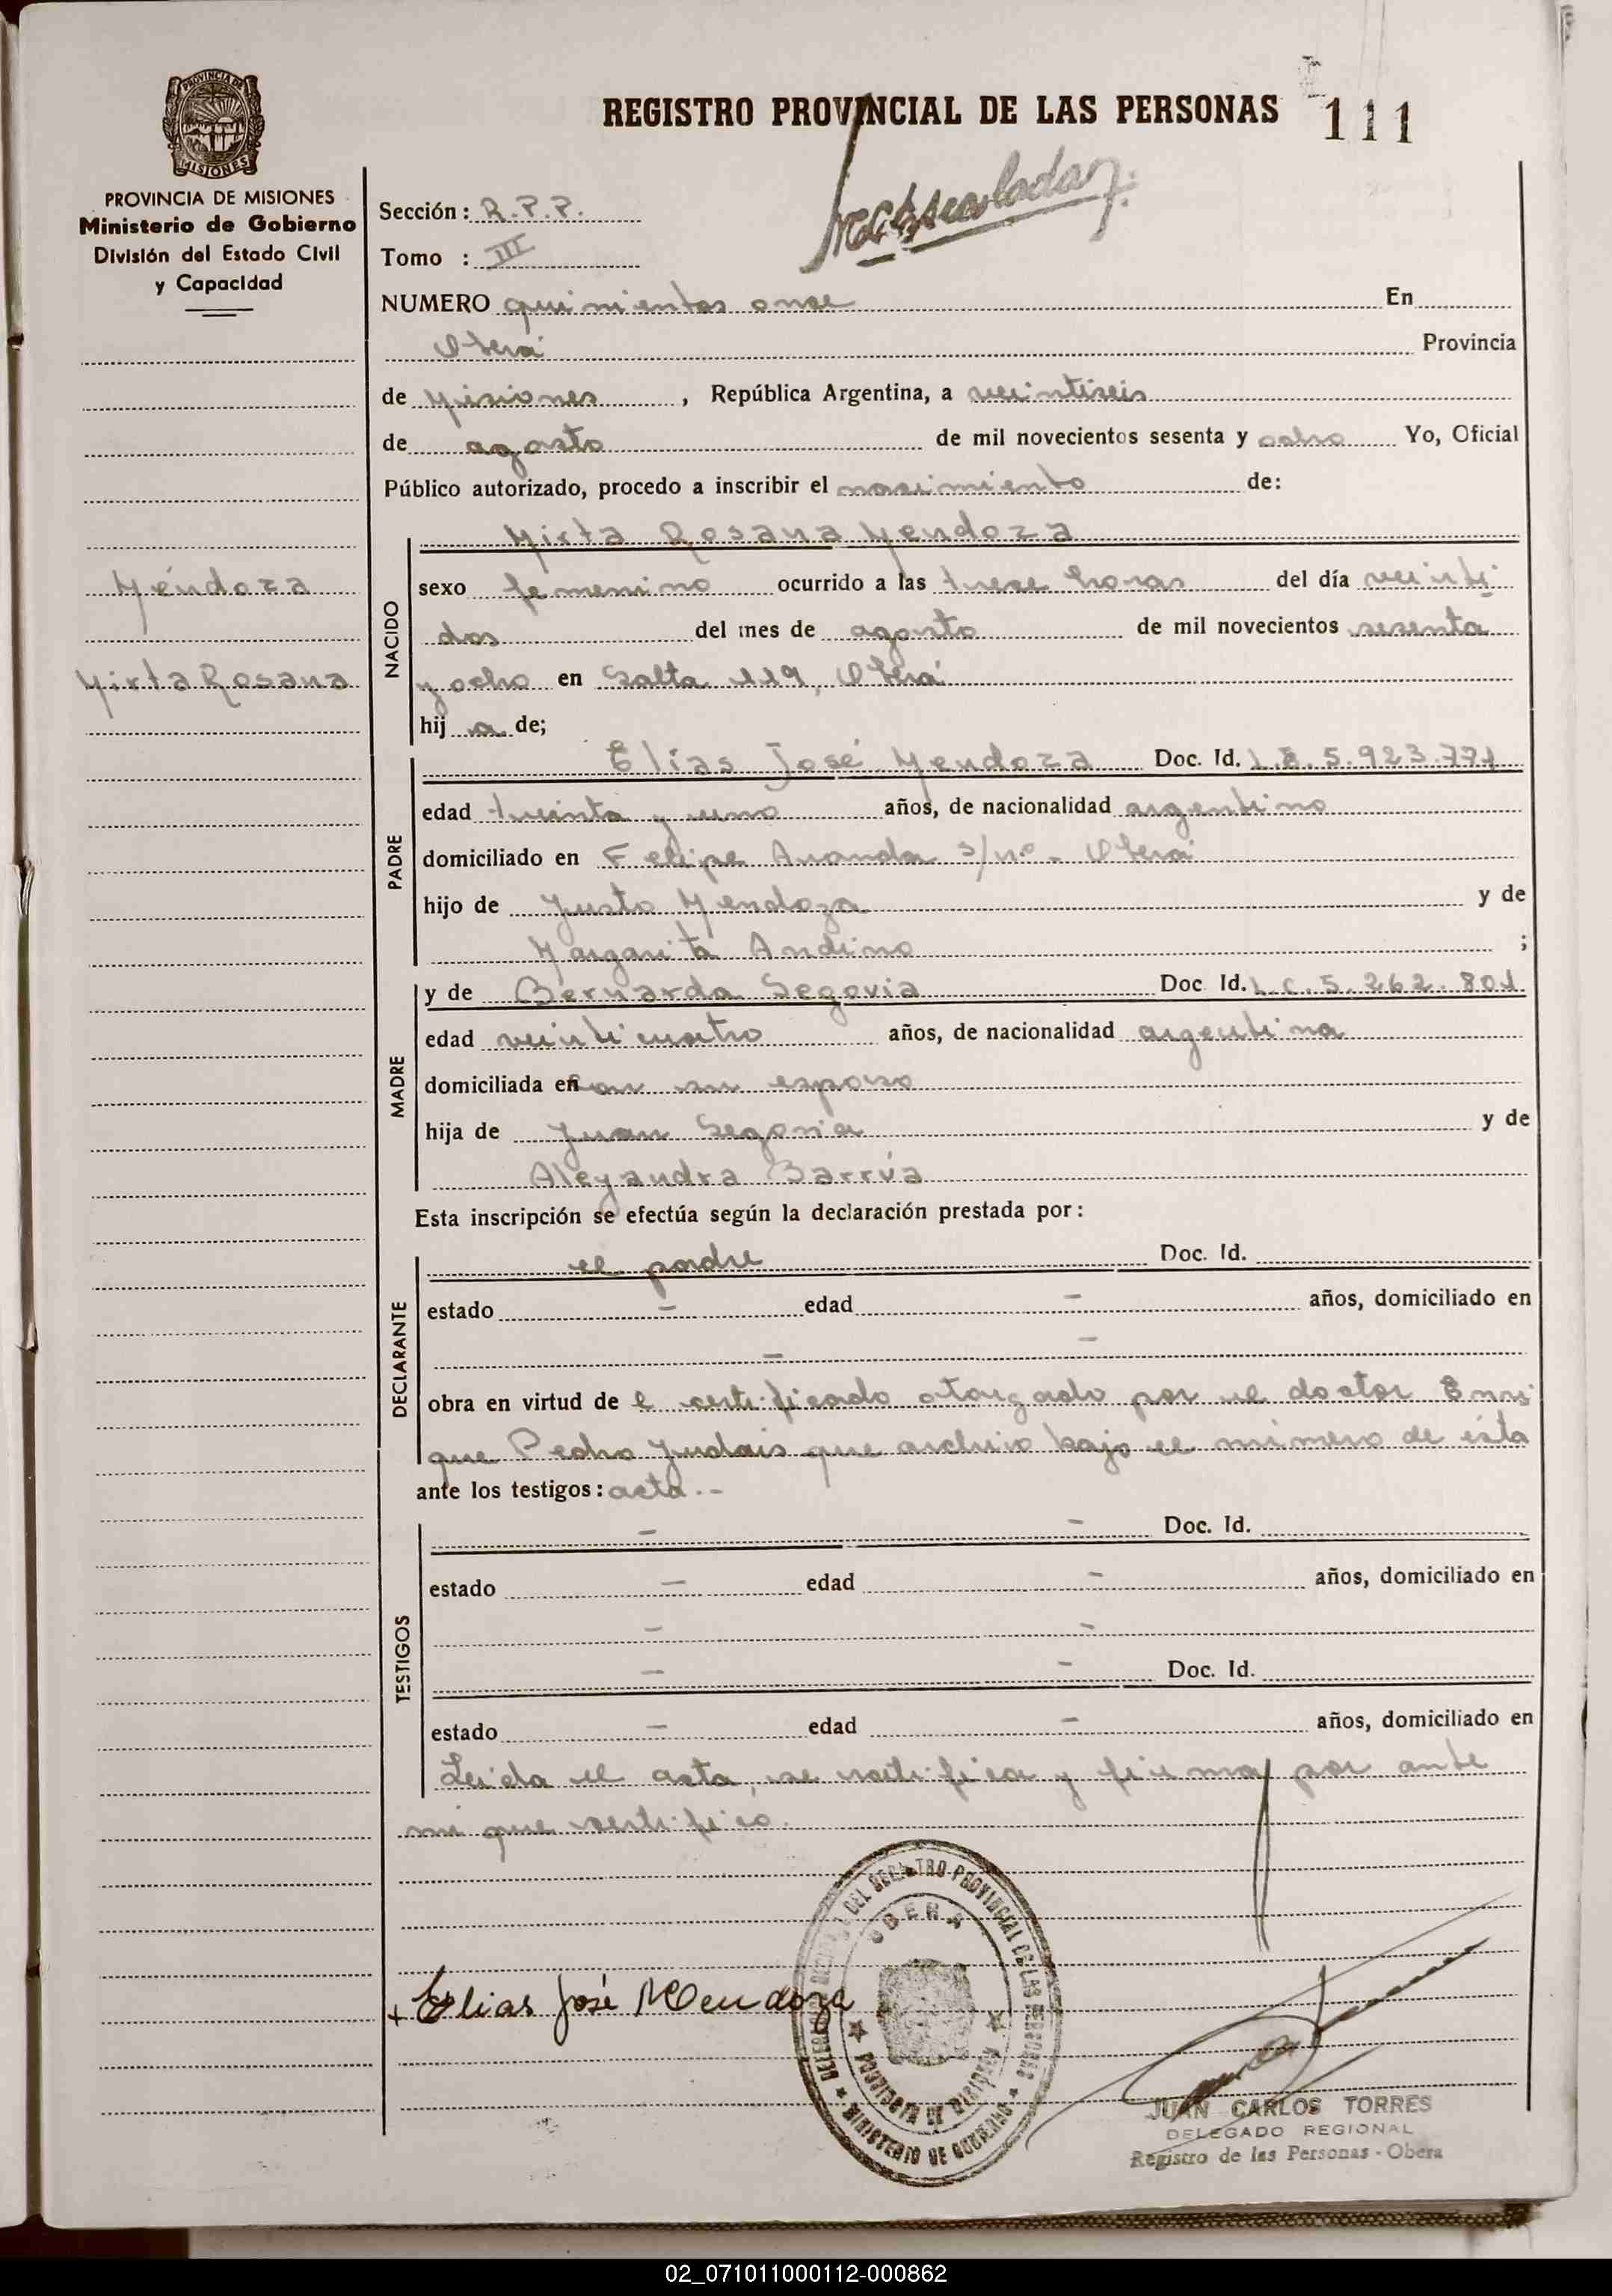 REGISTRO PROVINCIAL DE LAS PERSONAS 111
PROVINCIA DE
MISIONES
PROVINCIA DE MISIONES
Ministerio de Gobierno
División del Estado Civil
y Capacidad
Sección: R.P.P.
Tomo : III
NUMERO quinientos once En
Oberá Provincia
de Misiones, República Argentina, a veintiseis
de agosto de mil novecientos sesenta y ocho Yo, Oficial
Público autorizado, procedo a inscribir el nacimiento de:
Mendoza
Mirta Rosana
NACIDO
Mirta Rosana Mendoza
sexo femenino ocurrido a las trece horas del día veinti
dos del mes de agosto de mil novecientos sesenta
y ocho en Salta 119, Oberá
hij a de;
PADRE
Elias José Mendoza Doc. Id. L.E. 5.923.771
edad treinta y uno años, de nacionalidad argentino
domiciliado en Felipe s/nº - Oberá
hijo de Justo Mendoza y de
Margarita Andino ;
MADRE
y de Bernarda Segovia Doc Id. L.C. 5.262.801
edad veinticuatro años, de nacionalidad argentina
domiciliada en con su esposo
hija de Juan Segovia y de
Aleyandra Barrúa
Esta inscripción se efectúa según la declaración prestada por:
DECLARANTE
el padre Doc. Id.
estado - edad - años, domiciliado en
- -
obra en virtud de l certificado otorgado por el doctor Enri
que Pedro que archivo bajo el número de ésta
ante los testigos: acta.-
TESTIGOS
- - Doc. Id.
estado - edad - años, domiciliado en
- -
- - Doc. Id.
estado - edad - años, domiciliado en
Leida el acta, se ratifica y firma por ante
mi que certifico.
DEL REGISTRO PROVINCIAL DE LAS PERSONAS
OBERA
PROVINCIA DE MISIONES
MINISTERIO DE GOBIERNO
+ Elias José Mendoza
JUAN CARLOS TORRES
DELEGADO REGIONAL
Registro de las Personas - Obera
02_071011000112-000862